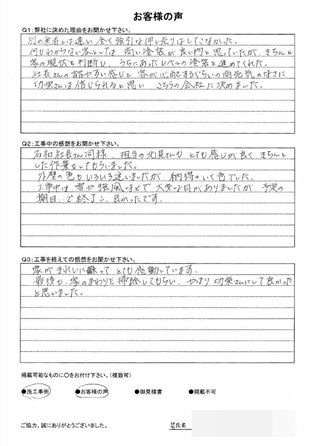 お客様の声
Q1:弊社に決めた理由をお聞かせ下さい。
別の業者とは違い全く強引な押し売りはしてこなかった。
何もわからない客としては、高い塗装が良い物と思っていたが、きちんと
家の現状を判断し、うちにあったレベルの塗装を進めてくれた。
社長さんの話やすい感じと客が心配するぐらいの商売気のなさに
功栄さんは信じられると思い こちらの会社に決めました。
Q2:工事中の感想をお聞かせ下さい。
石和社長さん同様、担当の北見さんも とても感じが良く きちんと
した作業をしてもらいました。
外壁の色もいろいろ迷いましたが、納得のいく色でした。
工事中は雪や強風などで 大変な日がありましたが 予定の
期日 で終了し、良かったです。
Q3:工事を終えての感想をお聞かせ下さい。
家がきれいに蘇って とても感動しています。
最後も、家のまわりを掃除してもらい、やはり功栄さんにして良かった
と思いました。
掲載可能なものに〇をお付け下さい。(複数可)
●施工事例 ●お客様の声 ●御見積書 ●掲載不可
ご協力、誠にありがとうございました。
芳氏名